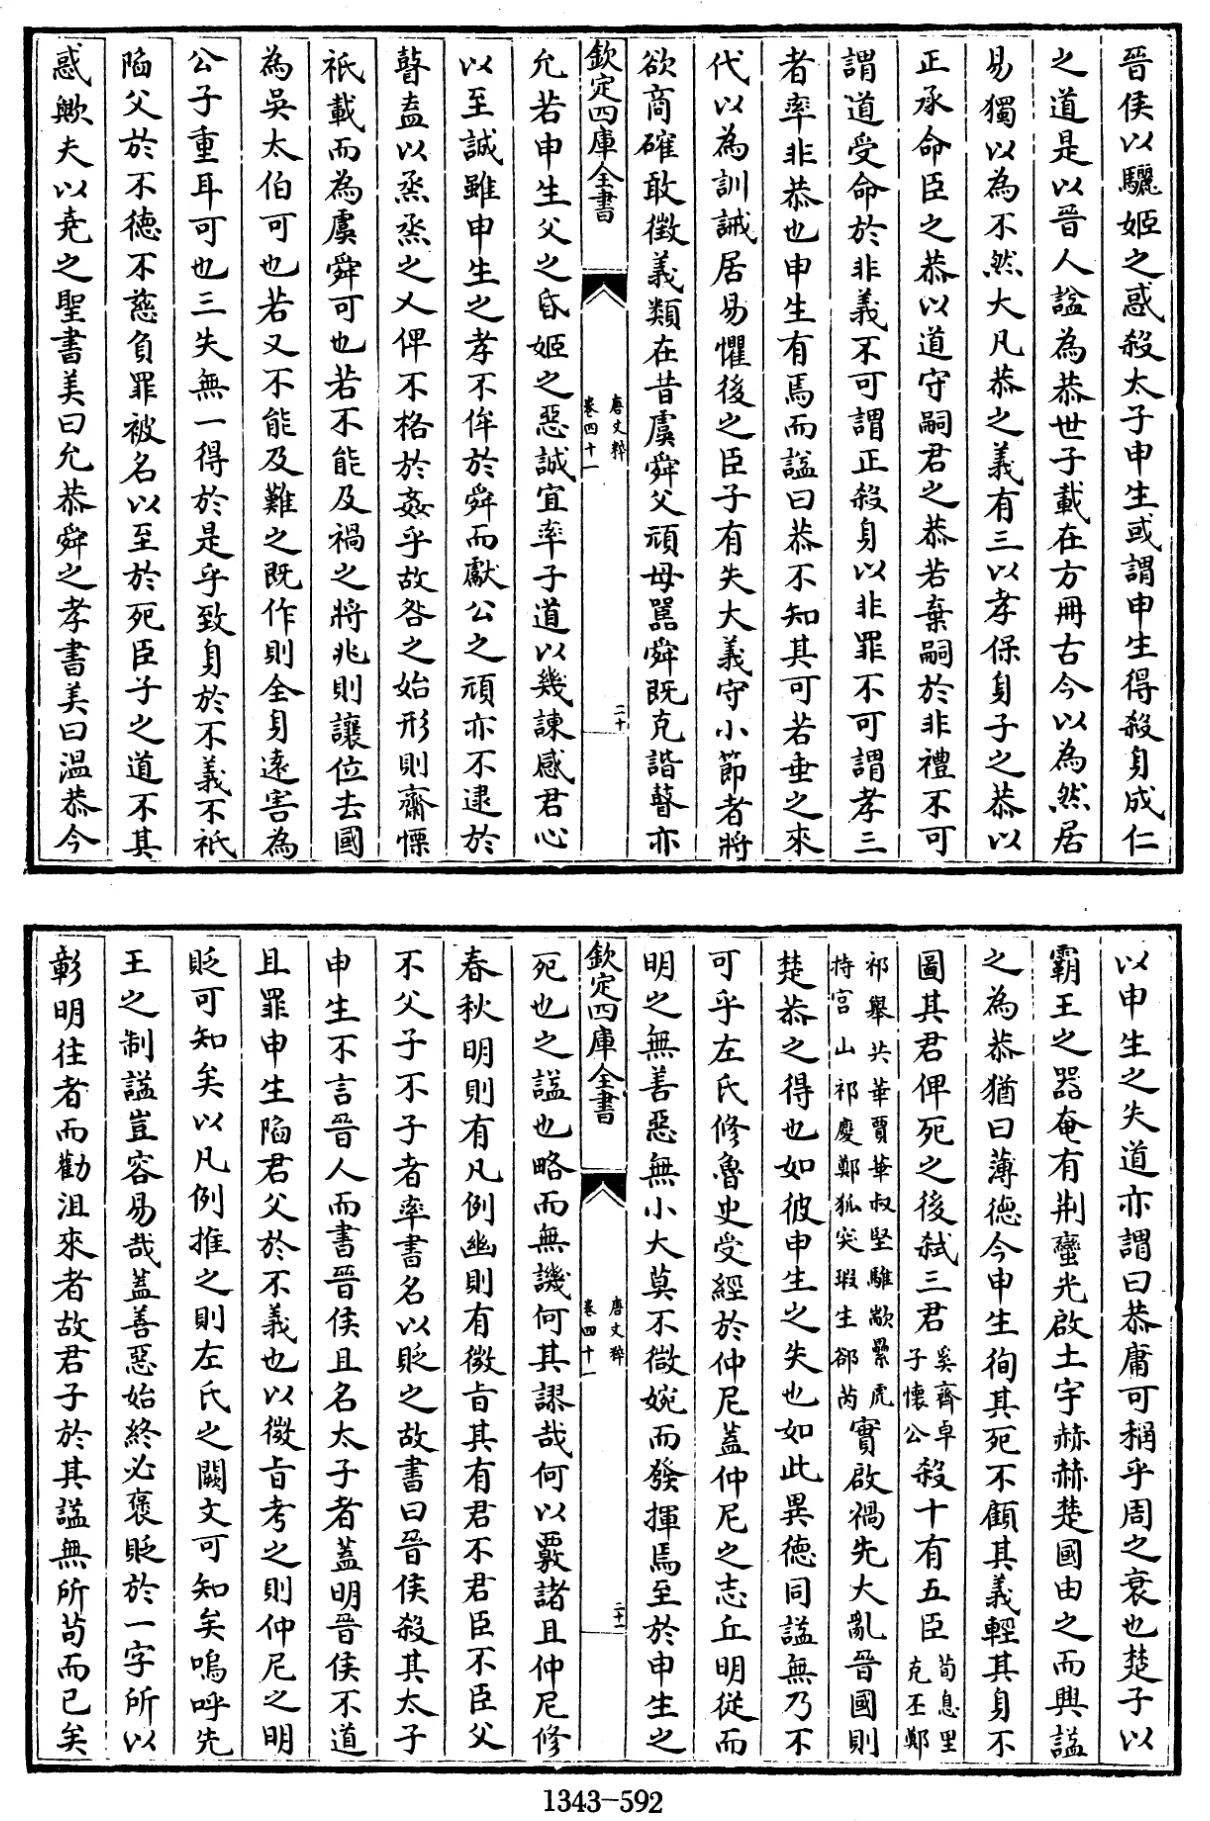 晉侯以驪姬之惑殺太子申生或謂申生得殺身成仁
之道是以晉人諡為恭世子載在方冊古今以為然居
易獨以為不然大凡恭之義有三以孝保身子之恭以
正承命臣之恭以道守嗣君之恭若棄嗣於非禮不可
謂道受命於非義不可謂正殺身以非罪不可謂孝三
者率非恭也申生有焉而諡曰恭不知其可若垂之來
代以為訓誡居易懼後之臣子有失大義守小節者將
欲商確敢徵義類在昔虞舜父頑母嚚舜既克諧瞽亦
欽定四庫全書
唐文粹
卷四十一
二十
允若申生父之昏姬之惡誠宜率子道以幾諫感君心
以至誠雖申生之孝不侔於舜而獻公之頑亦不逮於
瞽盍以烝烝之乂俾不格於姦乎故咎之始形則齋慄
祇載而為虞舜可也若不能及禍之將兆則讓位去國
為吳太伯可也若又不能及難之既作則全身遠害為
公子重耳可也三失無一得於是乎致身於不義不祇
陷父於不德不慈負罪被名以至於死臣子之道不其
惑歟夫以堯之聖書美曰允恭舜之孝書美曰溫恭今
以申生之失道亦謂曰恭庸可稱乎周之衰也楚子以
霸王之器奄有荆蠻光啟土宇赫赫楚國由之而興諡
之為恭猶曰薄德今申生徇其死不顧其義輕其身不
圖其君俾死之後弒三君奚齊卓子懷公殺十有五臣荀息里克丕鄭
祁舉共華賈華叔堅騅歂纍虎特宫山祁慶鄭狐突瑕生郤芮實啟禍先大亂晉國則
楚恭之得也如彼申生之失也如此異德同諡無乃不
可乎左氏修魯史受經於仲尼蓋仲尼之志丘明從而
明之無善惡無小大莫不微婉而發揮焉至於申生之
欽定四庫全書
唐文粹
卷四十一
二十一
死也之諡也略而無譏何其謬哉何以覈諸且仲尼修
春秋明則有凡例幽則有微旨其有君不君臣不臣父
不父子不子者率書名以貶之故書曰晉侯殺其太子
申生不言晉人而書晉侯且名太子者蓋明晉侯不道
且罪申生陷君父於不義也以微旨考之則仲尼之明
貶可知矣以凡例推之則左氏之闕文可知矣嗚呼先
王之制諡豈容易哉蓋善惡始終必褒貶於一字所以
彰明往者而勸沮來者故君子於其諡無所茍而已矣
1343-592